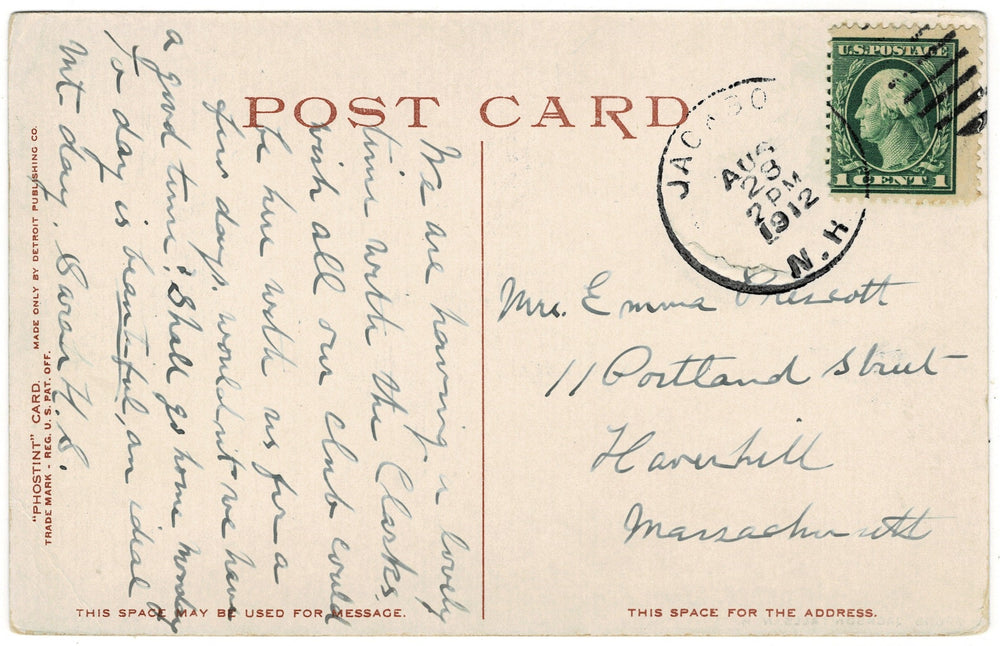 POST CARD
U.S. POSTAGE
1 CENT 1
JACKSO
AUG
28
2 PM
1912
N.H.
We are having a lovely
time with the Clarks,
wish all our Club could
be here with us for a
few days. wouldn't we have
a good time? Shall go home Monday
To day is beautiful, an ideal
Mt day. Sarah
Mrs. Emma Prescott
11 Portland Street
Haverhill
Massachusetts
"PHOSTINT" CARD. MADE ONLY BY DETROIT PUBLISHING CO.
TRADE MARK - REG. U. S. PAT. OFF.
THIS SPACE MAY BE USED FOR MESSAGE.
THIS SPACE FOR THE ADDRESS.